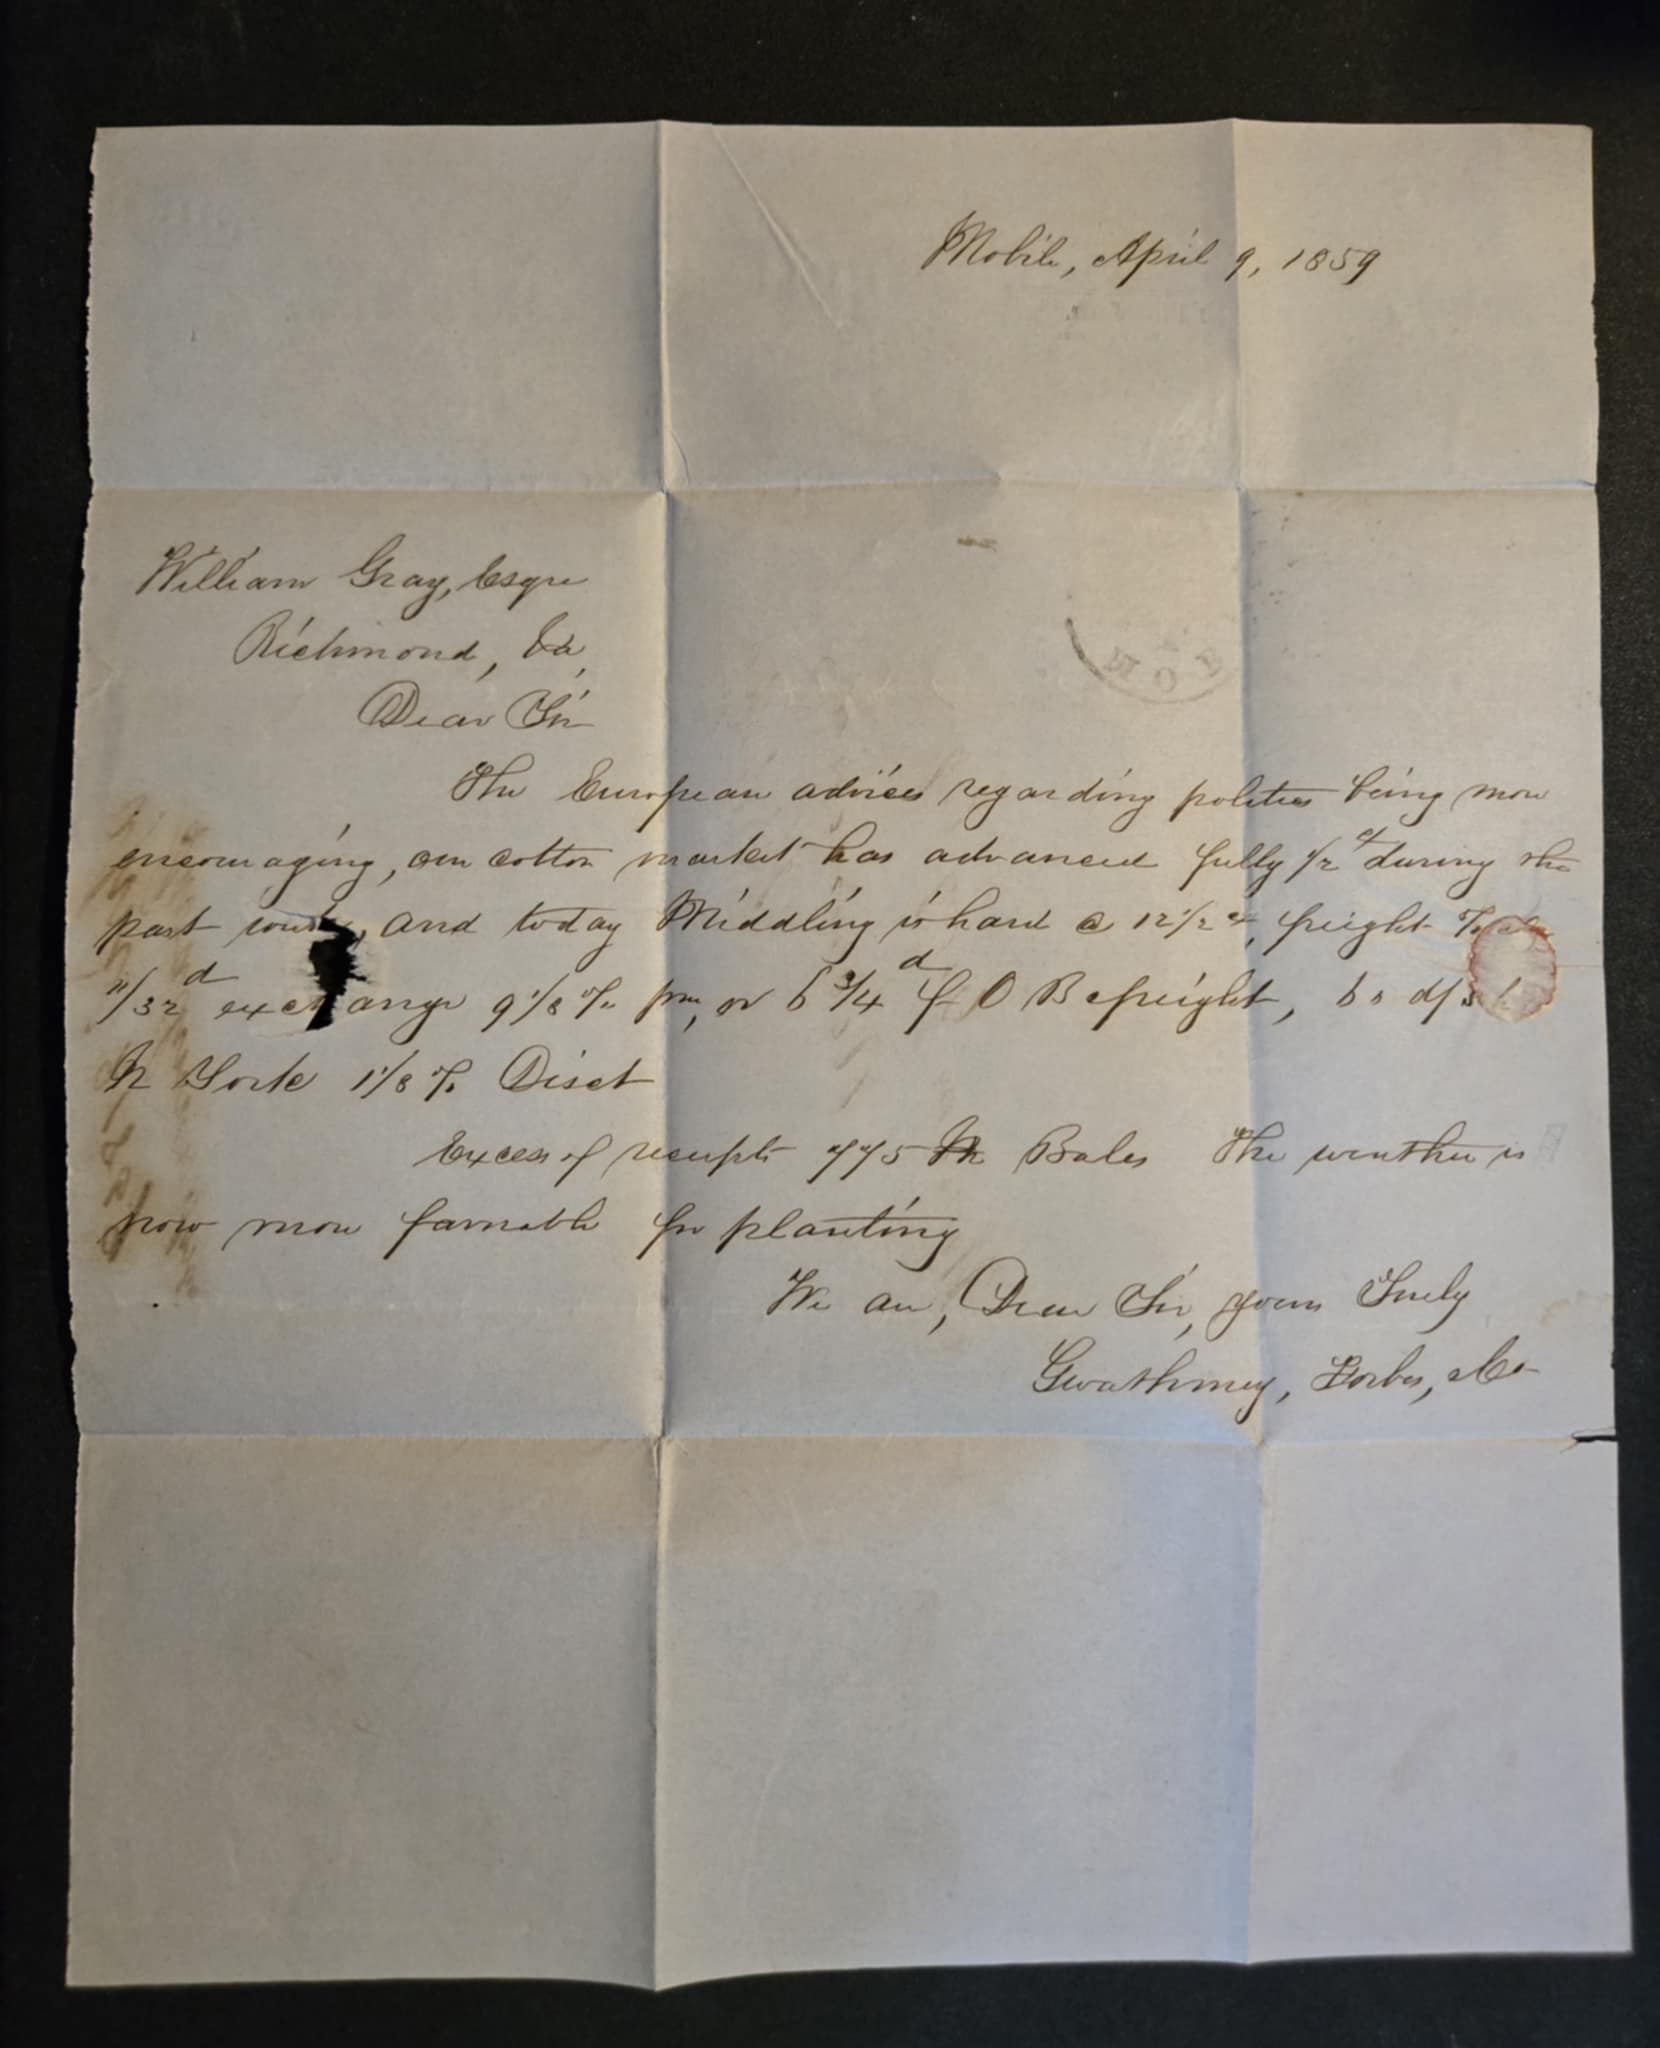 Mobile, April 9, 1859
William Gray, Esqre
Richmond, Va,
Dear Sir
The European advices regarding politics being more
encouraging, our cotton market has advanced fully 1/2 during the
past , and today Middling is hard @ 12 1/2 c, freight
11/32 d exchange 9 1/8 % pm, or 6 3/4 d f O B & freight, 60 d/s
N York 1 1/8 % Disct
Excess of receipts 775 M Bales The weather is
now more favorable for planting
We are, Dear Sir, yours Truly
Gwathmey, Forbes, & Co